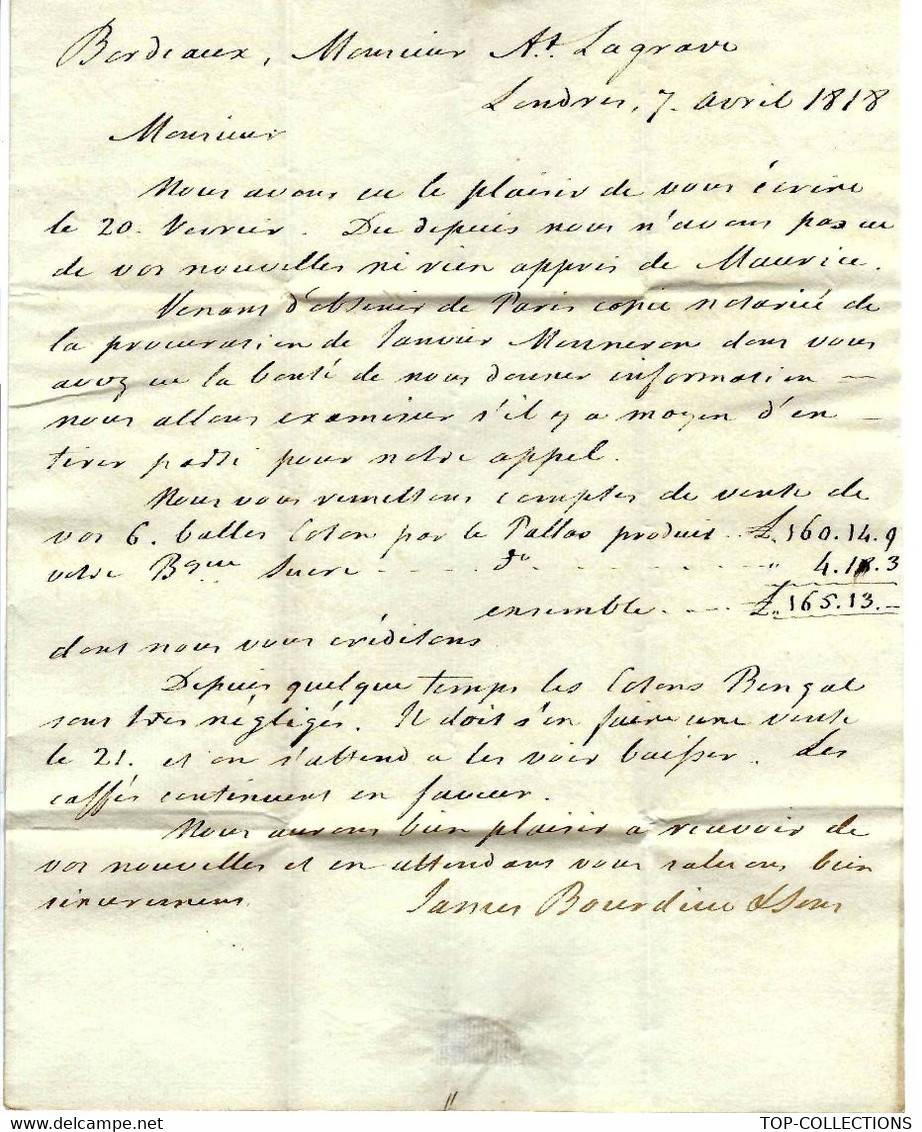 Bordeaux, Monsieur At. Lagrave
Londres, 7. avril 1818
Monsieur
Nous avons eu le plaisir de vous écrire
le 20. Fevrier. Du depuis nous n'avons pas eu
de vos nouvelles ni rien appris de Maurice.
Venant d'obtenir de Paris copie notariée de
la procuration de Janvier Monneron dont vous
avez eu la bonté de nous donner information —
nous allons examiner s'il y a moyen d'en —
tirer parti pour notre appel.
Nous vous remettons comptes de vente de
vos 6. balles Coton par le Pallas produit .. £.160.14.9
votre Bque Sucre - - - - - do - - - - - - - - - " 4.18.3
ensemble. - - - - £.165.13.—
dont nous vous créditons
Depuis quelque temps les Cotons Bengal
sont tres négligés. Il doit s'en faire une vente
le 21. et on s'attend a les voir baisser. Les
caffés continuent en faveur.
Nous aurons bien plaisir a recevoir de
vos nouvelles et en attendant vous saluons bien
sincerement.
James Bourdieu & Sons
TOP-COLLECTIONS